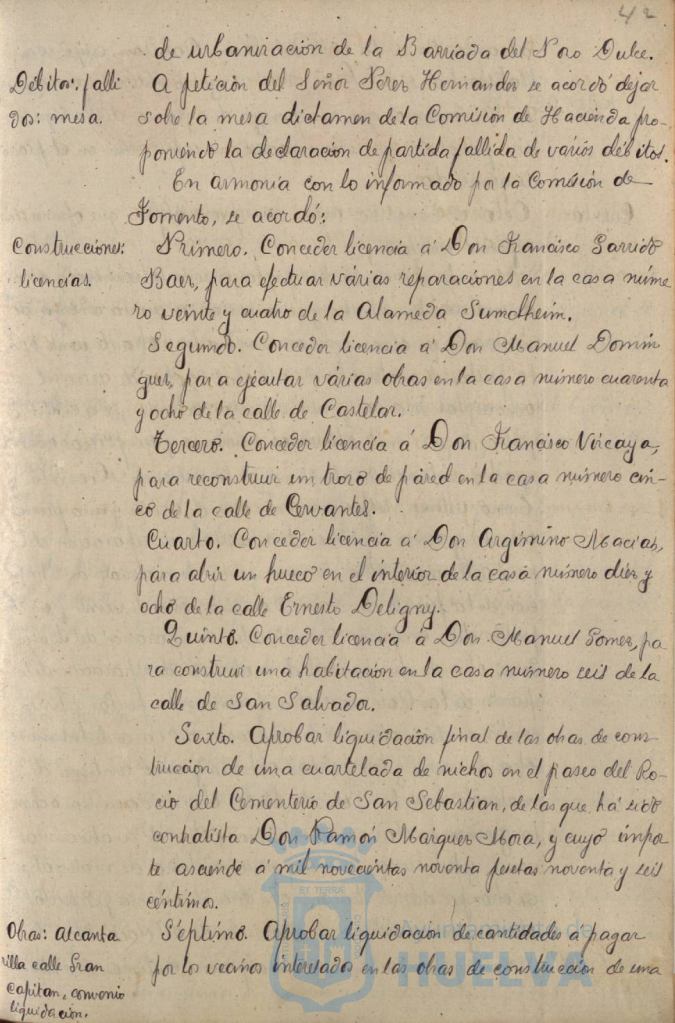 42
de urbanización de la Barriada del Poro Dulce.
Débitos: falli
dos: mesa.
A petición del Señor Perez Hernandez se acordó dejar
sobre la mesa dictamen de la Comisión de Hacienda pro-
poniendo la declaración de partida fallida de varios débitos.
En armonía con lo informado por la Comisión de
Fomento, se acordó:
Construcciones:
licencias.
Primero. Conceder licencia á Don Francisco Garrido
Baez, para efectuar várias reparaciones en la casa núme
ro veinte y cuatro de la Alameda Sumdheim.
Segundo. Conceder licencia á Don Manuel Domin
guez, para ejecutar várias obras en la casa número cuarenta
y ocho de la calle de Castelar.
Tercero. Conceder licencia á Don Francisco Vizcaya,
para reconstruir un trozo de páred en la casa número cin-
co de la calle de Cervantes.
Cuarto. Conceder licencia á Don Argimino Macias,
para abrir un hueco en el interior de la casa número diez y
ocho de la calle Ernesto Deligny.
Quinto. Conceder licencia á Don Manuel Gomez, pa
ra construir una habitación en la casa número seis de la
calle de San Salvador.
Sexto. Aprobar liquidación final de las obras de cons-
trucción de una cuartelada de nichos en el paseo del Ro-
cio del Cementerio de San Sebastian, de las que há sido
contratista Don Ramón Marquez Mora, y cuyo impor
te asciende á mil novecientas noventa pesetas noventa y seis
céntimos.
Obras: alcanta
rilla calle Gran
Capitan, convenio
liquidación.
Séptimo. Aprobar liquidación de cantidades á pagar
por los vecinos interesados en las obras de construcción de una
ET TERRÆ
Ayuntamiento de
HUELVA